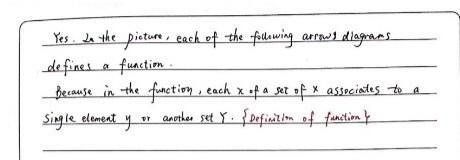 Yes. In the picture, each of the following arrows diagrams
defines a function.
Because in the function, each x of a set of x associates to a
single element y or another set Y. {Definition of function}